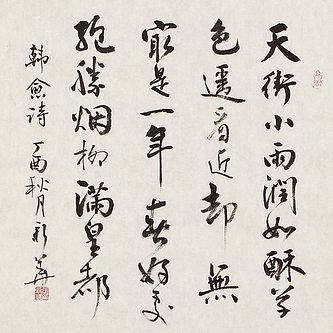 天街小雨潤如酥草
色遥看近却無
最是一年春好处
绝勝烟柳滿皇都
韩愈诗 丁酉秋月